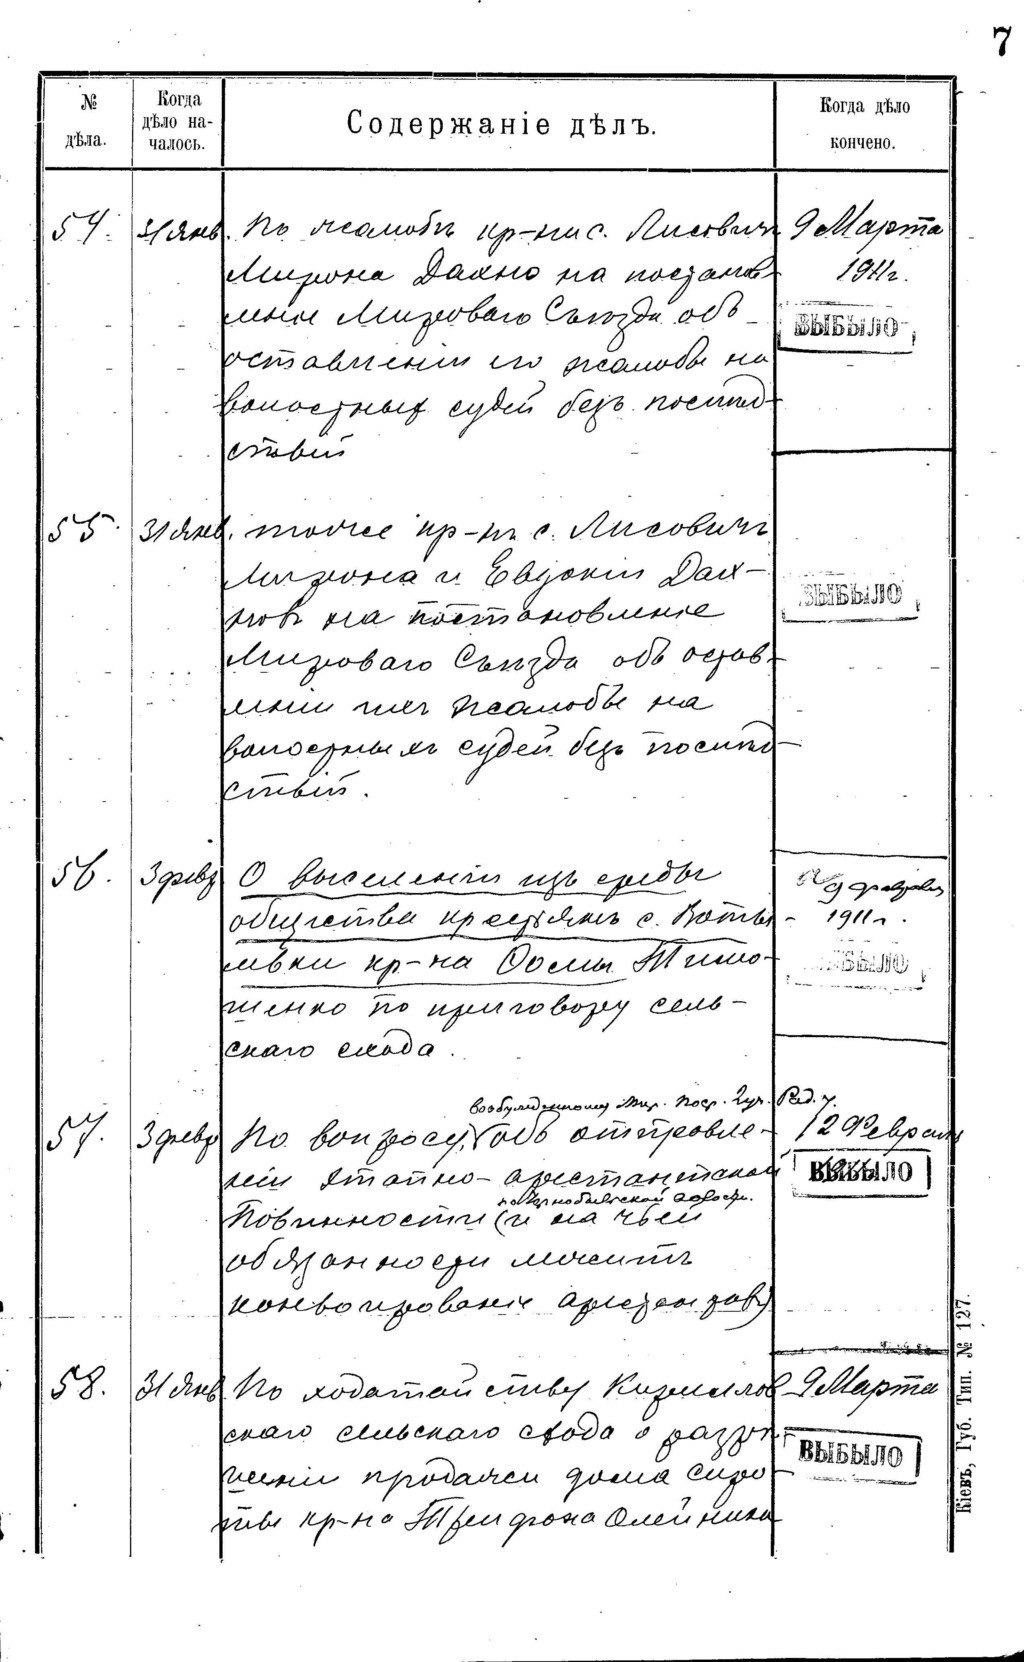 7
№ дѣла.
Когда дѣло началось.
Содержаніе дѣлъ.
Когда дѣло кончено.
54.
31 Янв.
По жалобѣ кр-на с. Лисовичъ
Мирона Дахно на постанов-
леніе Мироваго Съѣзда объ
оставленіи его жалобы на
волостных судей безъ послѣд-
ствій
9 Марта
1911 г.
ВЫБЫЛО
55.
31 Янв.
тоже кр-нъ с. Лисовичъ
Мирона и Евдокіи Дах-
новъ на постановленіе
Мироваго Съѣзда объ остав-
леніи ихъ жалобы на
волостныхъ судей безъ послѣд-
ствій.
ВЫБЫЛО
56.
3 февр
О выселеніи изъ среды
общества крестьянъ с. Коты-
левки кр-на Ѳомы Тимо-
шенко по приговору сель-
скаго схода.
9 февраля
1911 г.
ВЫБЫЛО
57.
3 февр
возбужденному Мир. Поср. 2 уч. Рад. у.
По вопросу, объ отправле-
ніи этапно-арестантской
по Чернобыльской волости.
Повинности (и на чьей
обязанности лежитъ
конвоированіе арестантовъ)
12 Февраля
ВЫБЫЛО
58.
31 Янв
По ходатайству Кирилов
скаго сельскаго схода о разрѣ-
шеніи продажи дома сиро-
ты кр-на Трифона Олейника
9 Марта
ВЫБЫЛО
Кіевъ, Губ. Тип. № 127.